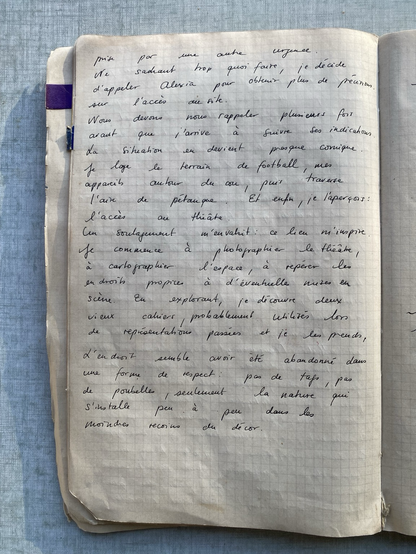 prise par une autre urgence.
Ne sachant trop quoi faire, je décide
d'appeler Alexia pour obtenir plus de précisions
sur l'accès du site.
Nous devons nous rappeler plusieurs fois
avant que j'arrive à suivre ses indications
La situation en devient presque comique.
Je longe le terrain de football, mes
appareils autour du cou, puis traverse
l'aire de pétanque. Et enfin, je l'aperçois:
l'accès au théâtre
Un soulagement m'envahit: ce lieu m'inspire
Je commence à photographier le théâtre,
à cartographier l'espace, à repérer les
endroits propices à d'éventuelle mises en
scène. En explorant, je découvre deux
vieux cahiers, probablement utilisés lors
de représentations passées et je les prends,
L'endroit semble avoir été abandonné dans
une forme de respect pas de tags, pas
de poubelles, seulement la nature qui
s'installe peu à peu dans les
moindres recoins du décor.